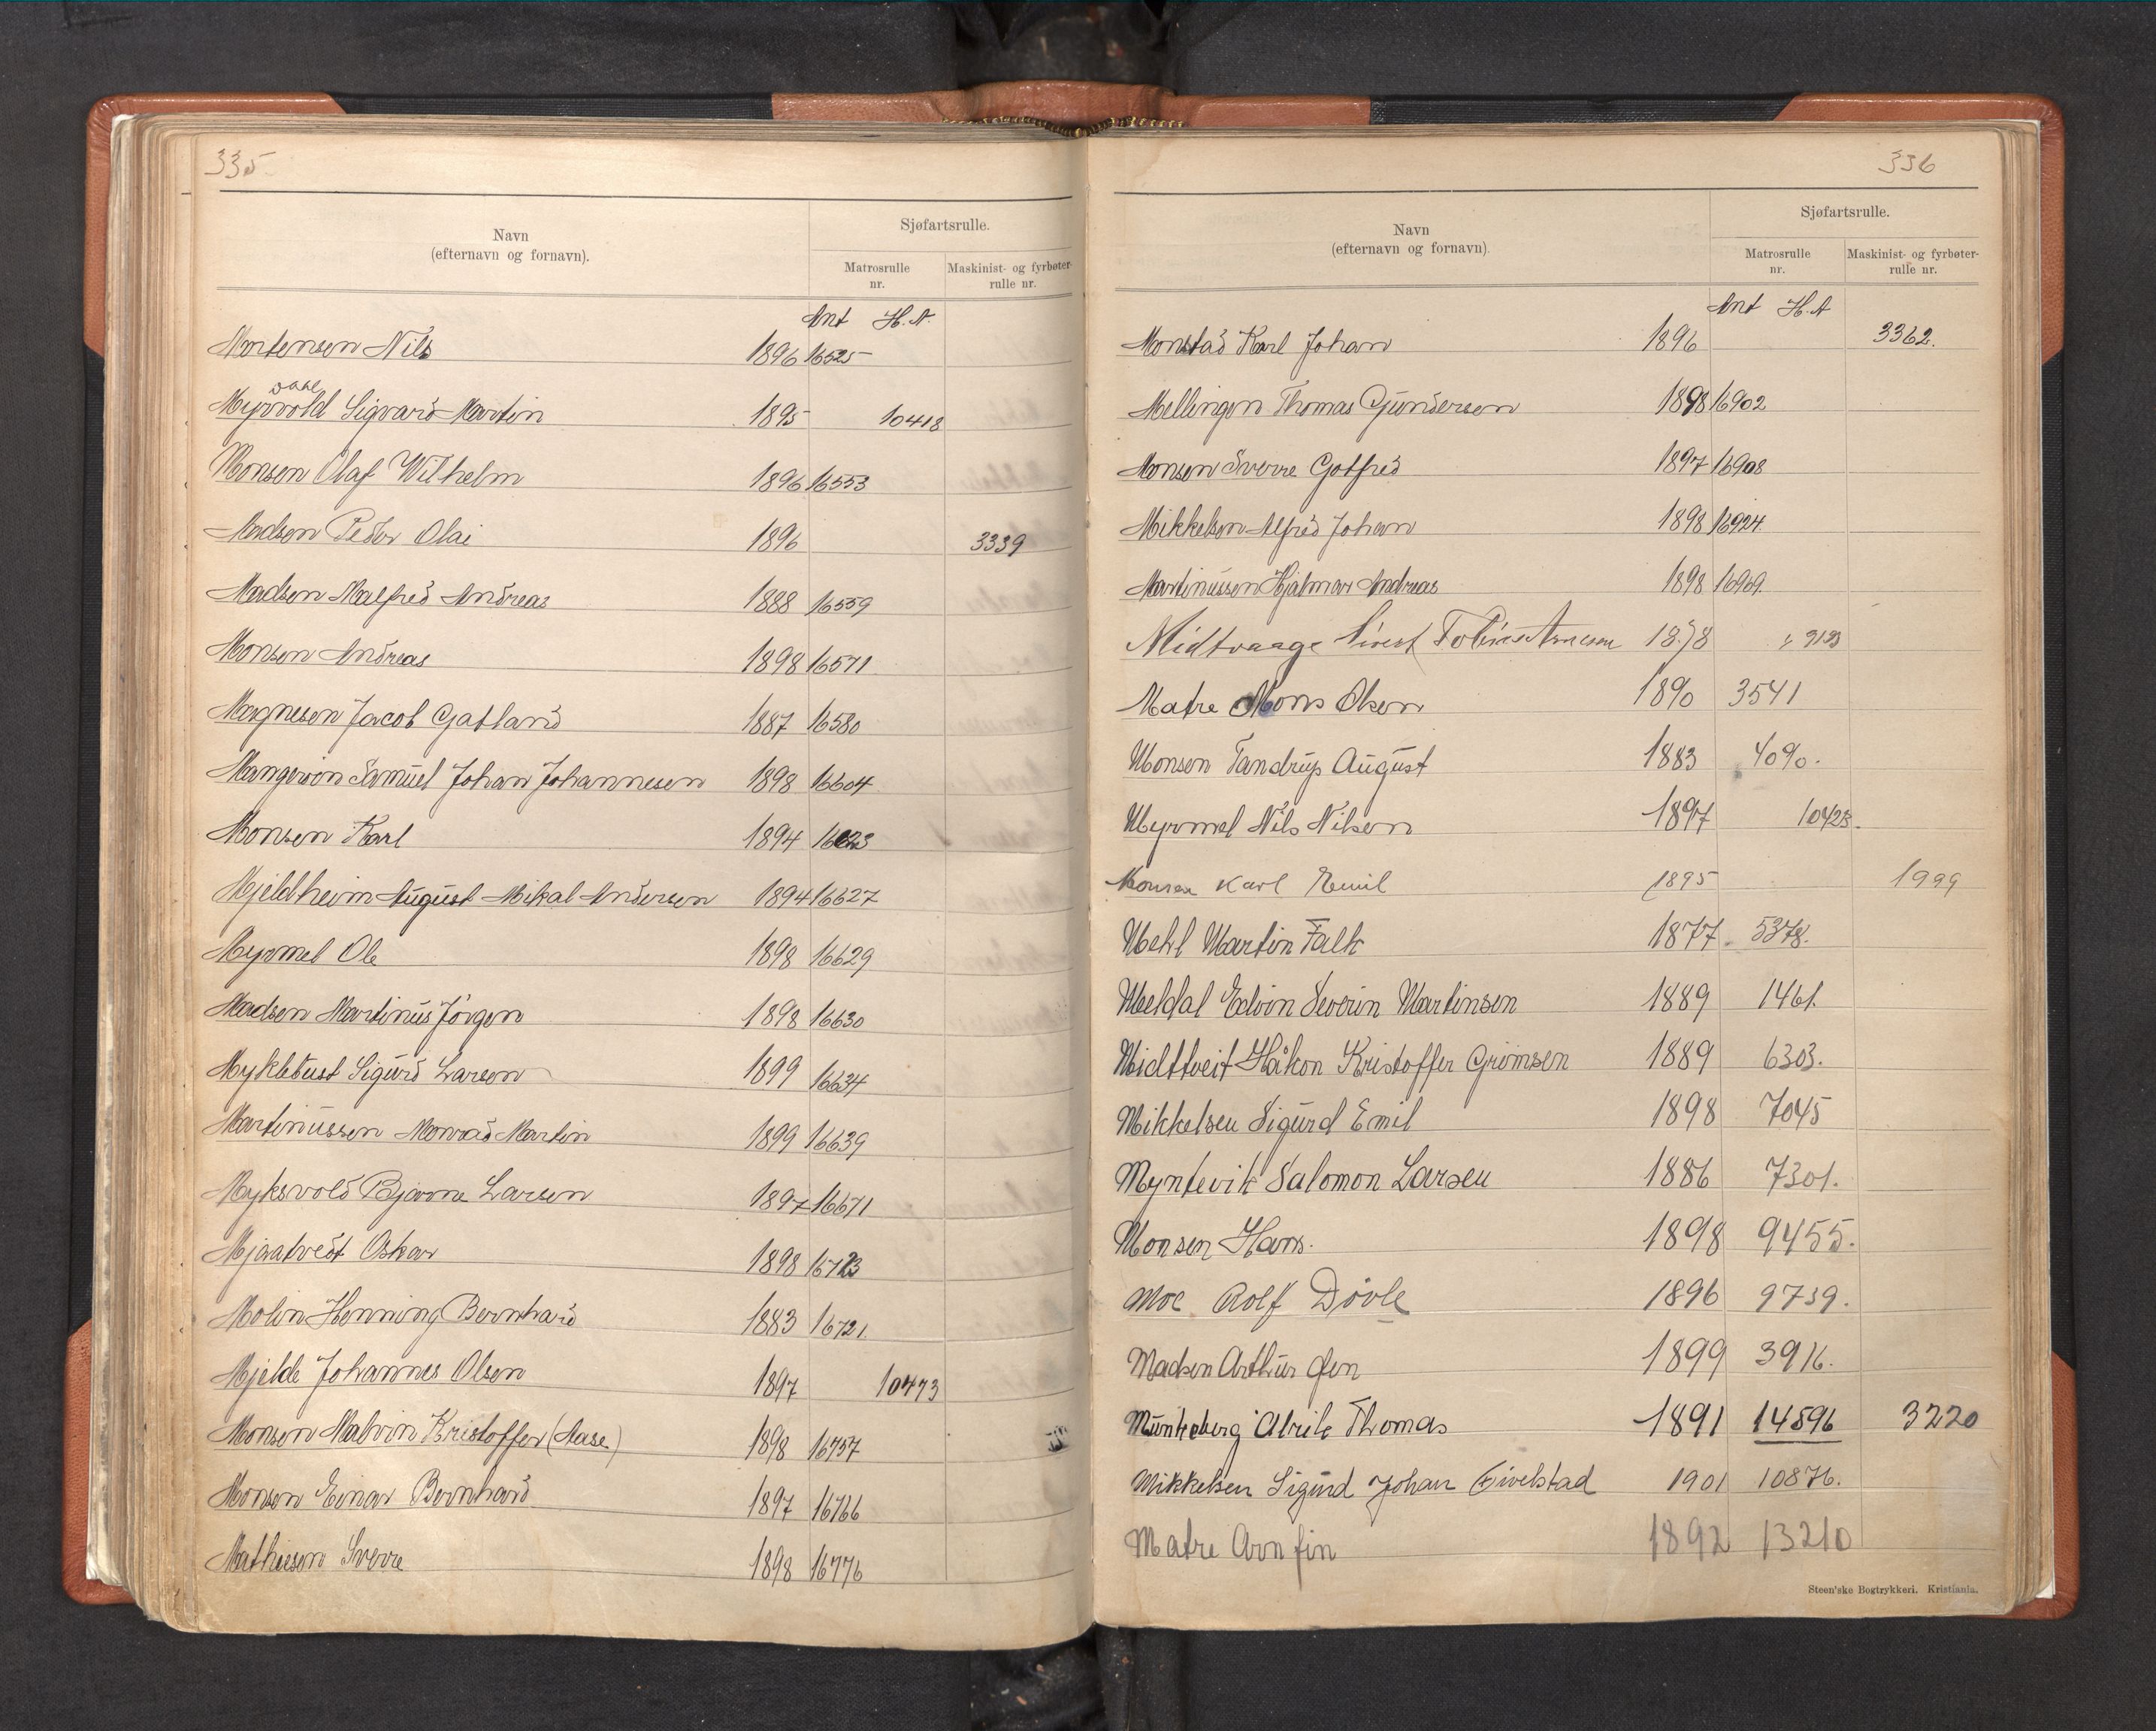 335
Navn
(efternavn og fornavn).
Sjøfartsrulle.
Matrosrulle
nr.
Maskinist- og fyrbøter-
rulle nr.
Ant H.A.
Mortensen Nils 1896 16525
Myrvold Sigvard Martin 1895 10418
Monsen Olaf Wilhelm 1896 16553
Madsen Peder Olai 1896 3339
Madsen Malfred Andreas 1888 16559
Monsen Andreas 1898 16571
Magnesen Jacob Gatland 1887 16580
Mangerøn Samuel Johan Johannesen 1898 16604
Monsen Karl 1894 16623
Mjeldheim August Mikal Andersen 1894 16627
Myrmel Ole 1898 16629
Madsen Martinus Jörgen 1898 16630
Myklebust Sigurd Larsen 1899 16634
Martinussen Monrad Martin 1899 16639
Myksvold Bjarne Larsen 1897 16671
Mjaatvedt Oskar 1898
Molin Henning Bernhard 1883 16721
Mjelde Johannes Olsen 1897 10473
Monsen Malvin Kristoffer (Aase) 1898 16757
Monsen Einar Bernhard 1897 16766
Mathiesen Sverre 1898 16776
336
Navn
(efternavn og fornavn).
Sjøfartsrulle.
Matrosrulle
nr.
Maskinist- og fyrbøter-
rulle nr.
Ant H.A
Monstad Karl Johan 1896 3362.
Mellingen Thomas Gundersen 1898 16902
Monsen Sverre Gotfred 1897 16908
Mikkelsen Alfred Johan 1898 16924
Martinussen Hjalmar Andreas 1898 16969.
Midtvaage Sivert 1878
Matre Mons Olsen 1890 3541
Monsen Tandrup August 1883 4090.
Myrmel Nils Nilsen 1897 10423.
Monsen Karl Emil 1895 1999
Mehl Martin Falk 1877 5378.
Meldal Edvin Severin Martinsen 1889 1461.
Midttveit Håkon Kristoffer Grimsen 1889 6303.
Mikkelsen Sigurd Emil 1898 7045
Myntevik Salomon Larsen 1886 7301.
Monsen Hans. 1898 9455.
Moe Rolf Dövle 1896 9739.
Madsen Arthur 1899 3916.
Munkeberg Alrik Thomas 1891 14596 3220
Mikkelsen Sigurd Johan Eivelstad 1901 10876.
Matre Arnfin 1892 13210
Steen'ske Bogtrykkeri. Kristiania.